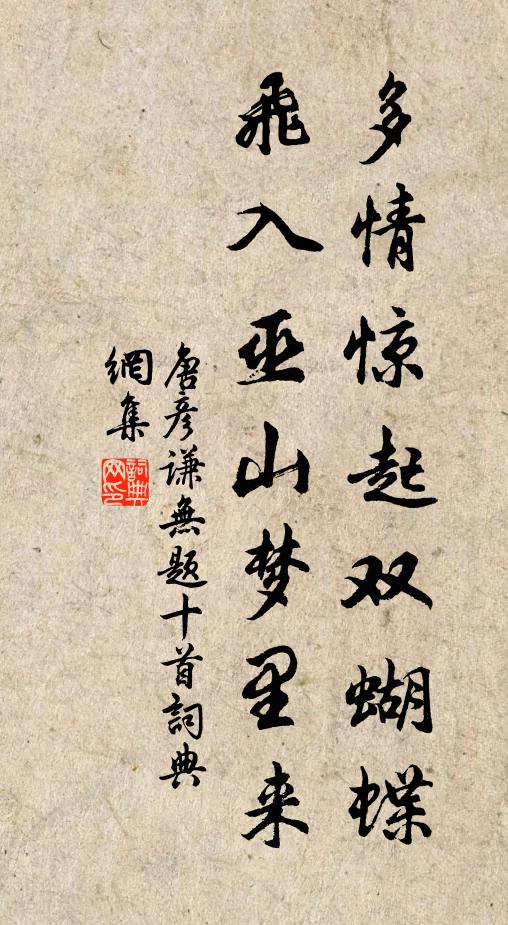 多情惊起双蝴蝶
飞入巫山梦里来
唐彦谦無题十首詞典
網集
詞典
网印